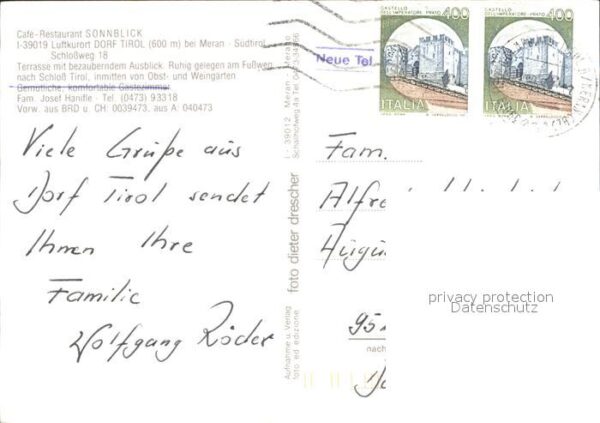 Café-Restaurant SONNBLICK
I-39019 Luftkurort DORF TIROL (600 m) bei Meran · Südtirol
Schloßweg 18
Terrasse mit bezauberndem Ausblick. Ruhig gelegen am Fußweg
nach Schloß Tirol, inmitten von Obst- und Weingärten
Gemütliche, komfortable Gästezimmer
Fam. Josef Hanifle · Tel. (0473) 93318
Vorw. aus BRD u. CH: 0039473, aus A: 040473
Neue Tel
CASTELLO
DELL'IMPERATORE · PRATO
400
ITALIA
CASTELLO
DELL'IMPERATORE · PRATO
400
ITALIA
Viele Grüße aus
Dorf Tirol sendet
Ihnen Ihre
Familie
Wolfgang Röder
Aufnahme u. Verlag
foto ed edizione
foto dieter drescher
I - 39012 Meran
Fam.
Alfre
Augu
95
nach
privacy protection
Datenschutz